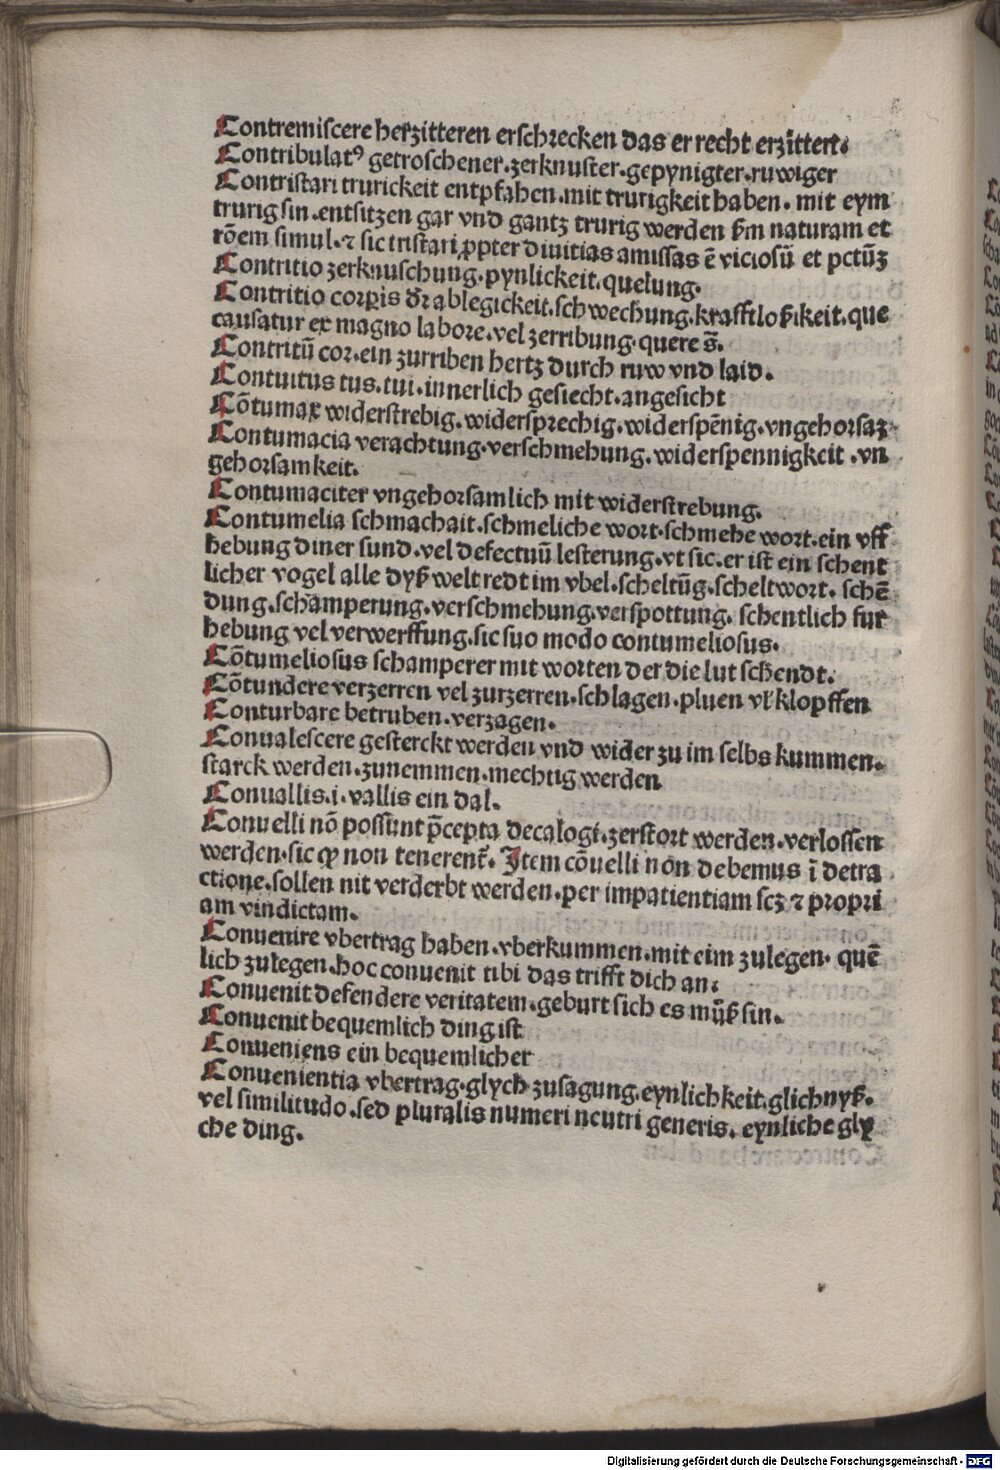 Contremiscere herzitteren erschrecken das er recht erzittert.
Contribulatꝰ getroschener.zerknuster.gepynigter.ruwiger
Contristari trurickeit entpfahen.mit trurigkeit haben. mit eym
trurig sin.entsitzen gar vnd gantz trurig werden ẜm naturam et
rōem simul.⁊ sic tristari ꝓpter diuitias amissas ē viciosū et pctūꝫ
Contritio zerknuschung.pynlickeit.quelung.
Contritio corꝑis dr̄ ablegickeit.schwechung.krafftloßikeit.que
causatur ex magno labore.vel zerribung.quere s̄.
Contritū cor.ein zurriben hertz durch ruw vnd laid.
Contuitus tus.tui.innerlich gesiecht.angesicht
Cōtumax widerstrebig.widersprechig.widerspēnig.vngehorsaꝫ
Contumacia verachtung.verschmehung.widerspennigkeit.vn
gehorsamkeit.
Contumaciter vngehorsamlich mit widerstrebung.
Contumelia schmachait.schmeliche wort.schmehe wort.ein vff
hebung diner sund.vel defectuū lesterung.vt sic.er ist ein schent
licher vogel alle dyß welt redt im vbel.scheltūg.scheltwort. schē
dung.schamperung.verschmehung.verspottung. schentlich fur
hebung vel verwerffung.sic suo modo contumeliosus.
Cōtumeliosus schamperer mit worten der die lut schendt.
Cōtundere verzerren vel zurzerren.schlagen.pluen vl' klopffen
Conturbare betruben.verzagen.
Conualescere gesterckt werden vnd wider zu im selbs kummen.
starck werden.zunemmen.mechtig werden
Conuallis.i.vallis ein dal.
Conuelli nō possunt p̄cepta decalogi.zerstort werden.verlossen
werden.sic ꝙ non tenerent̄. Item cōuelli non debemus ī detra
ctione.sollen nit verderbt werden.per impatientiam scꝫ ⁊ propri
am vindictam.
Conuenire vbertrag haben.vberkummen.mit eim zulegen. quē
lich zulegen.hoc conuenit tibi das trifft dich an.
Conuenit defendere veritatem.geburt sich es mů̈ß sin.
Conuenit bequemlich ding ist
Conueniens ein bequemlicher
Conuenientia vbertrag.glych zusagung.eynlichkeit.glichnyß.
vel similitudo.sed pluralis numeri neutri generis. eynliche gly
che ding.
Digitalisierung gefördert durch die Deutsche Forschungsgemeinschaft - DFG